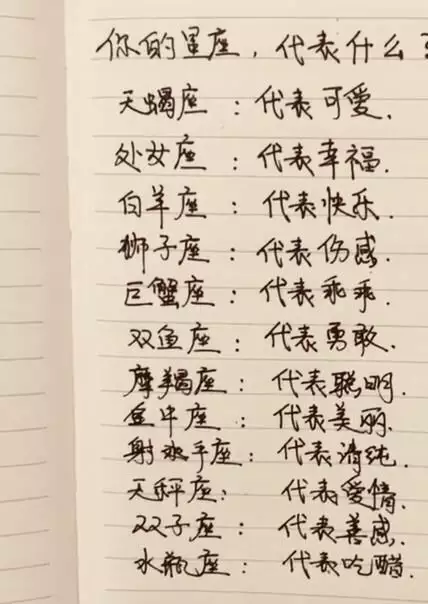 你的星座，代表什么？
天蝎座：代表可爱.
处女座：代表幸福.
白羊座：代表快乐.
狮子座：代表伤感.
巨蟹座：代表乖乖.
双鱼座：代表勇敢.
摩羯座：代表聪明.
金牛座：代表美丽.
射手座：代表清纯.
天秤座：代表爱情.
双子座：代表善感.
水瓶座：代表吃醋.